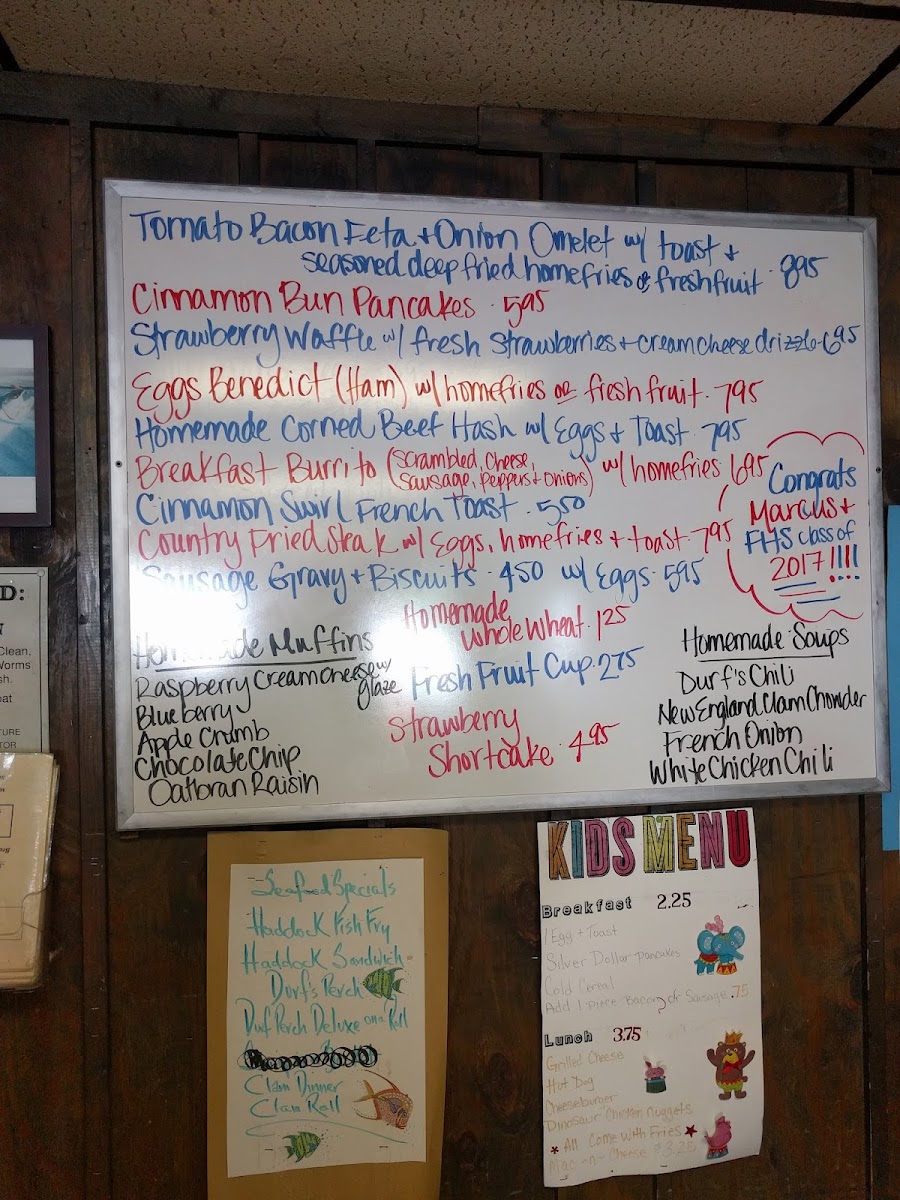 Tomato Bacon Feta + Onion Omelet w/ toast +
seasoned deep fried homefries or fresh fruit . 895
Cinnamon Bun Pancakes . 595
Strawberry Waffle w/ fresh Strawberries + cream cheese drizzle - 695
Eggs Benedict (Ham) w/ homefries or fresh fruit . 795
Homemade Corned Beef Hash w/ Eggs + Toast . 795
Breakfast Burrito (scrambled, cheese,
sausage, peppers + onions) w/ homefries . 695
Cinnamon Swirl French Toast . 550
Country Fried Steak w/ Eggs, homefries + toast . 795
Sausage Gravy + Biscuits . 450 w/ Eggs . 595
Congrats
Marcus +
FHS class of
2017 !!!!
Homemade Muffins
Raspberry Cream cheese w/
glaze
Blueberry
Apple Crumb
Chocolate Chip
Oatbran Raisin
Homemade
Whole Wheat . 125
Fresh Fruit Cup . 275
Strawberry
Shortcake . 495
Homemade Soups
Durf's Chili
New England Clam Chowder
French Onion
White Chicken Chili
Seafood Specials
Haddock Fish Fry
Haddock Sandwich
Durf's Perch
Durf Perch Deluxe on a Roll
Clam Dinner
Clam Roll
KIDS MENU
Breakfast 2.25
1 Egg + Toast
Silver Dollar pancakes
Cold Cereal
Add 1 piece Bacon or Sausage .75
Lunch 3.75
Grilled Cheese
Hot Dog
Cheeseburger
Dinosaur Chicken Nuggets
* All Come With Fries *
Mac-n-Cheese $3.25
D:
N
Clean,
Worms
sh.
oat
TURE
TOR